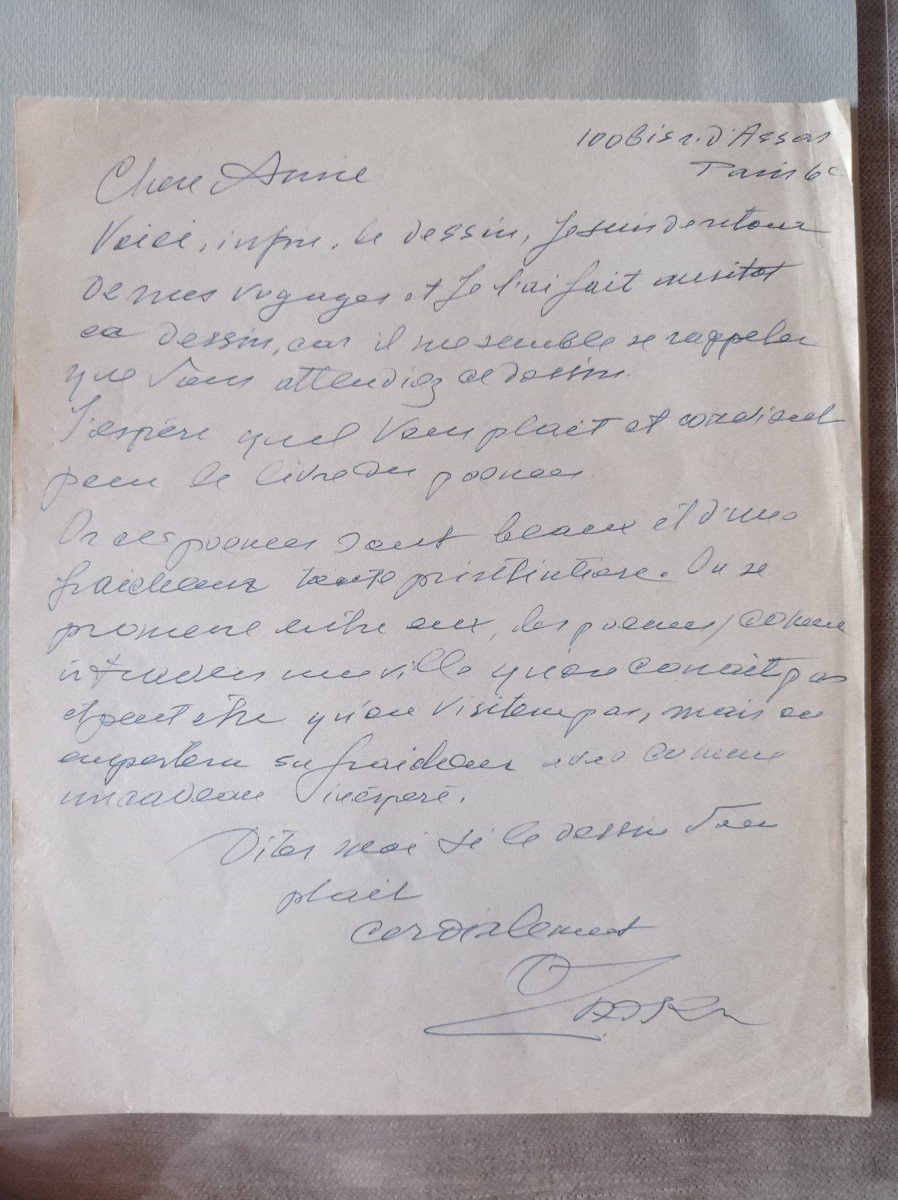 100 bis r. d'Assas
Paris 6e
Chere Annie
Voici, infin, le dessin, Je suis de retour
de mes voyages et Je l'ai fait aussitot
ce dessin, car il me semble se rappeler
que Vous attendiez ce dessin.
J'espère qu'il Vous plait et convient
pour le livre des poemes
Or ces poemes sont beaux et d'une
fraicheur toute printintiere. On se
promene entre eux, les poemes, comme
à travers une ville qu'on conait pas
et peut etre qu'on visitera pas, mais on
emportera sa fraicheur comme
un cadeau inésperé.
Dites moi si le dessin Vous
plait
cordialement
OZadkin